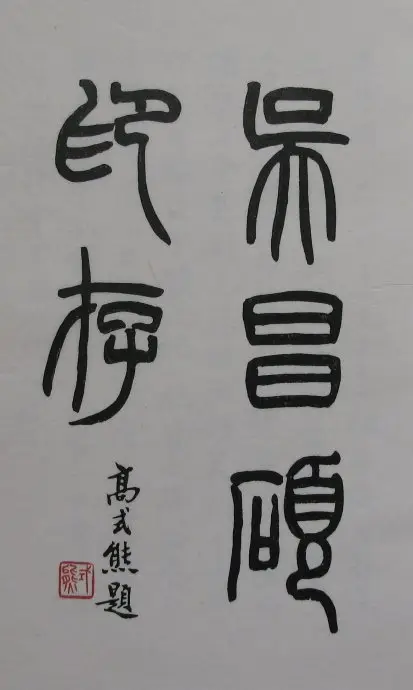 吴昌碩
印存
高式熊題
式熊